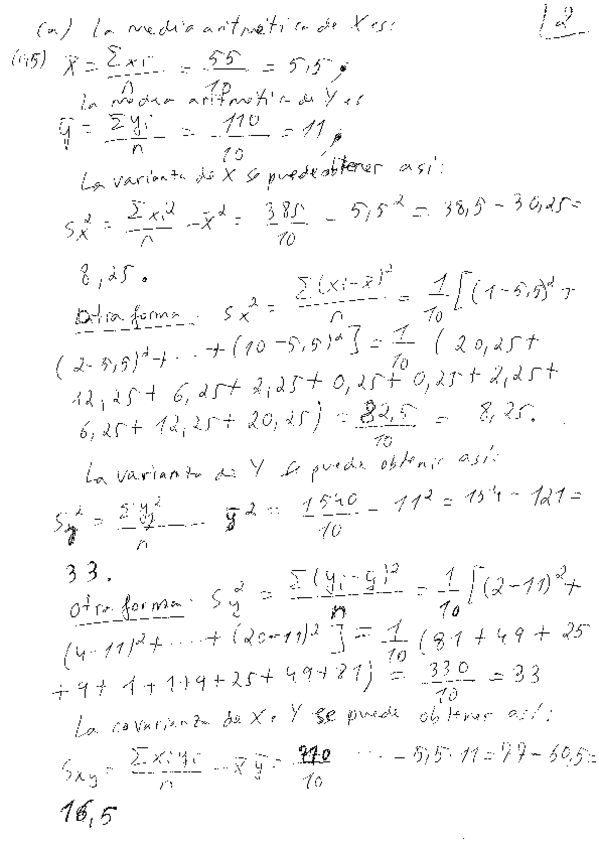 (a) La media aritmética de X es: 2
(1,5) x̄ = Σxi / n = 55 / 10 = 5,5;
La media aritmética de Y es
ȳ = Σyi / n = 110 / 10 = 11;
La varianza de X se puede obtener así:
Sx² = Σxi² / n - x̄² = 385 / 10 - 5,5² = 38,5 - 30,25 =
8,25.
Otra forma. Sx² = Σ(xi - x̄)² / n = 1/10 [(1-5,5)² +
(2-5,5)² + ... + (10-5,5)²] = 1/10 (20,25 +
12,25 + 6,25 + 2,25 + 0,25 + 0,25 + 2,25 +
6,25 + 12,25 + 20,25) = 82,5 / 10 = 8,25.
La varianza de Y se puede obtener así:
Sy² = Σyi² / n - ȳ² = 1540 / 10 - 11² = 154 - 121 =
33.
Otra forma. Sy² = Σ(yi - ȳ)² / n = 1/10 [(2-11)² +
(4-11)² + ... + (20-11)²] = 1/10 (81 + 49 + 25
+ 9 + 1 + 1 + 9 + 25 + 49 + 81) = 330 / 10 = 33
La covarianza de X e Y se puede obtener así:
Sxy = Σxi yi / n - x̄ ȳ = 770 / 10 ... - 5,5·11 = 77 - 60,5 =
16,5